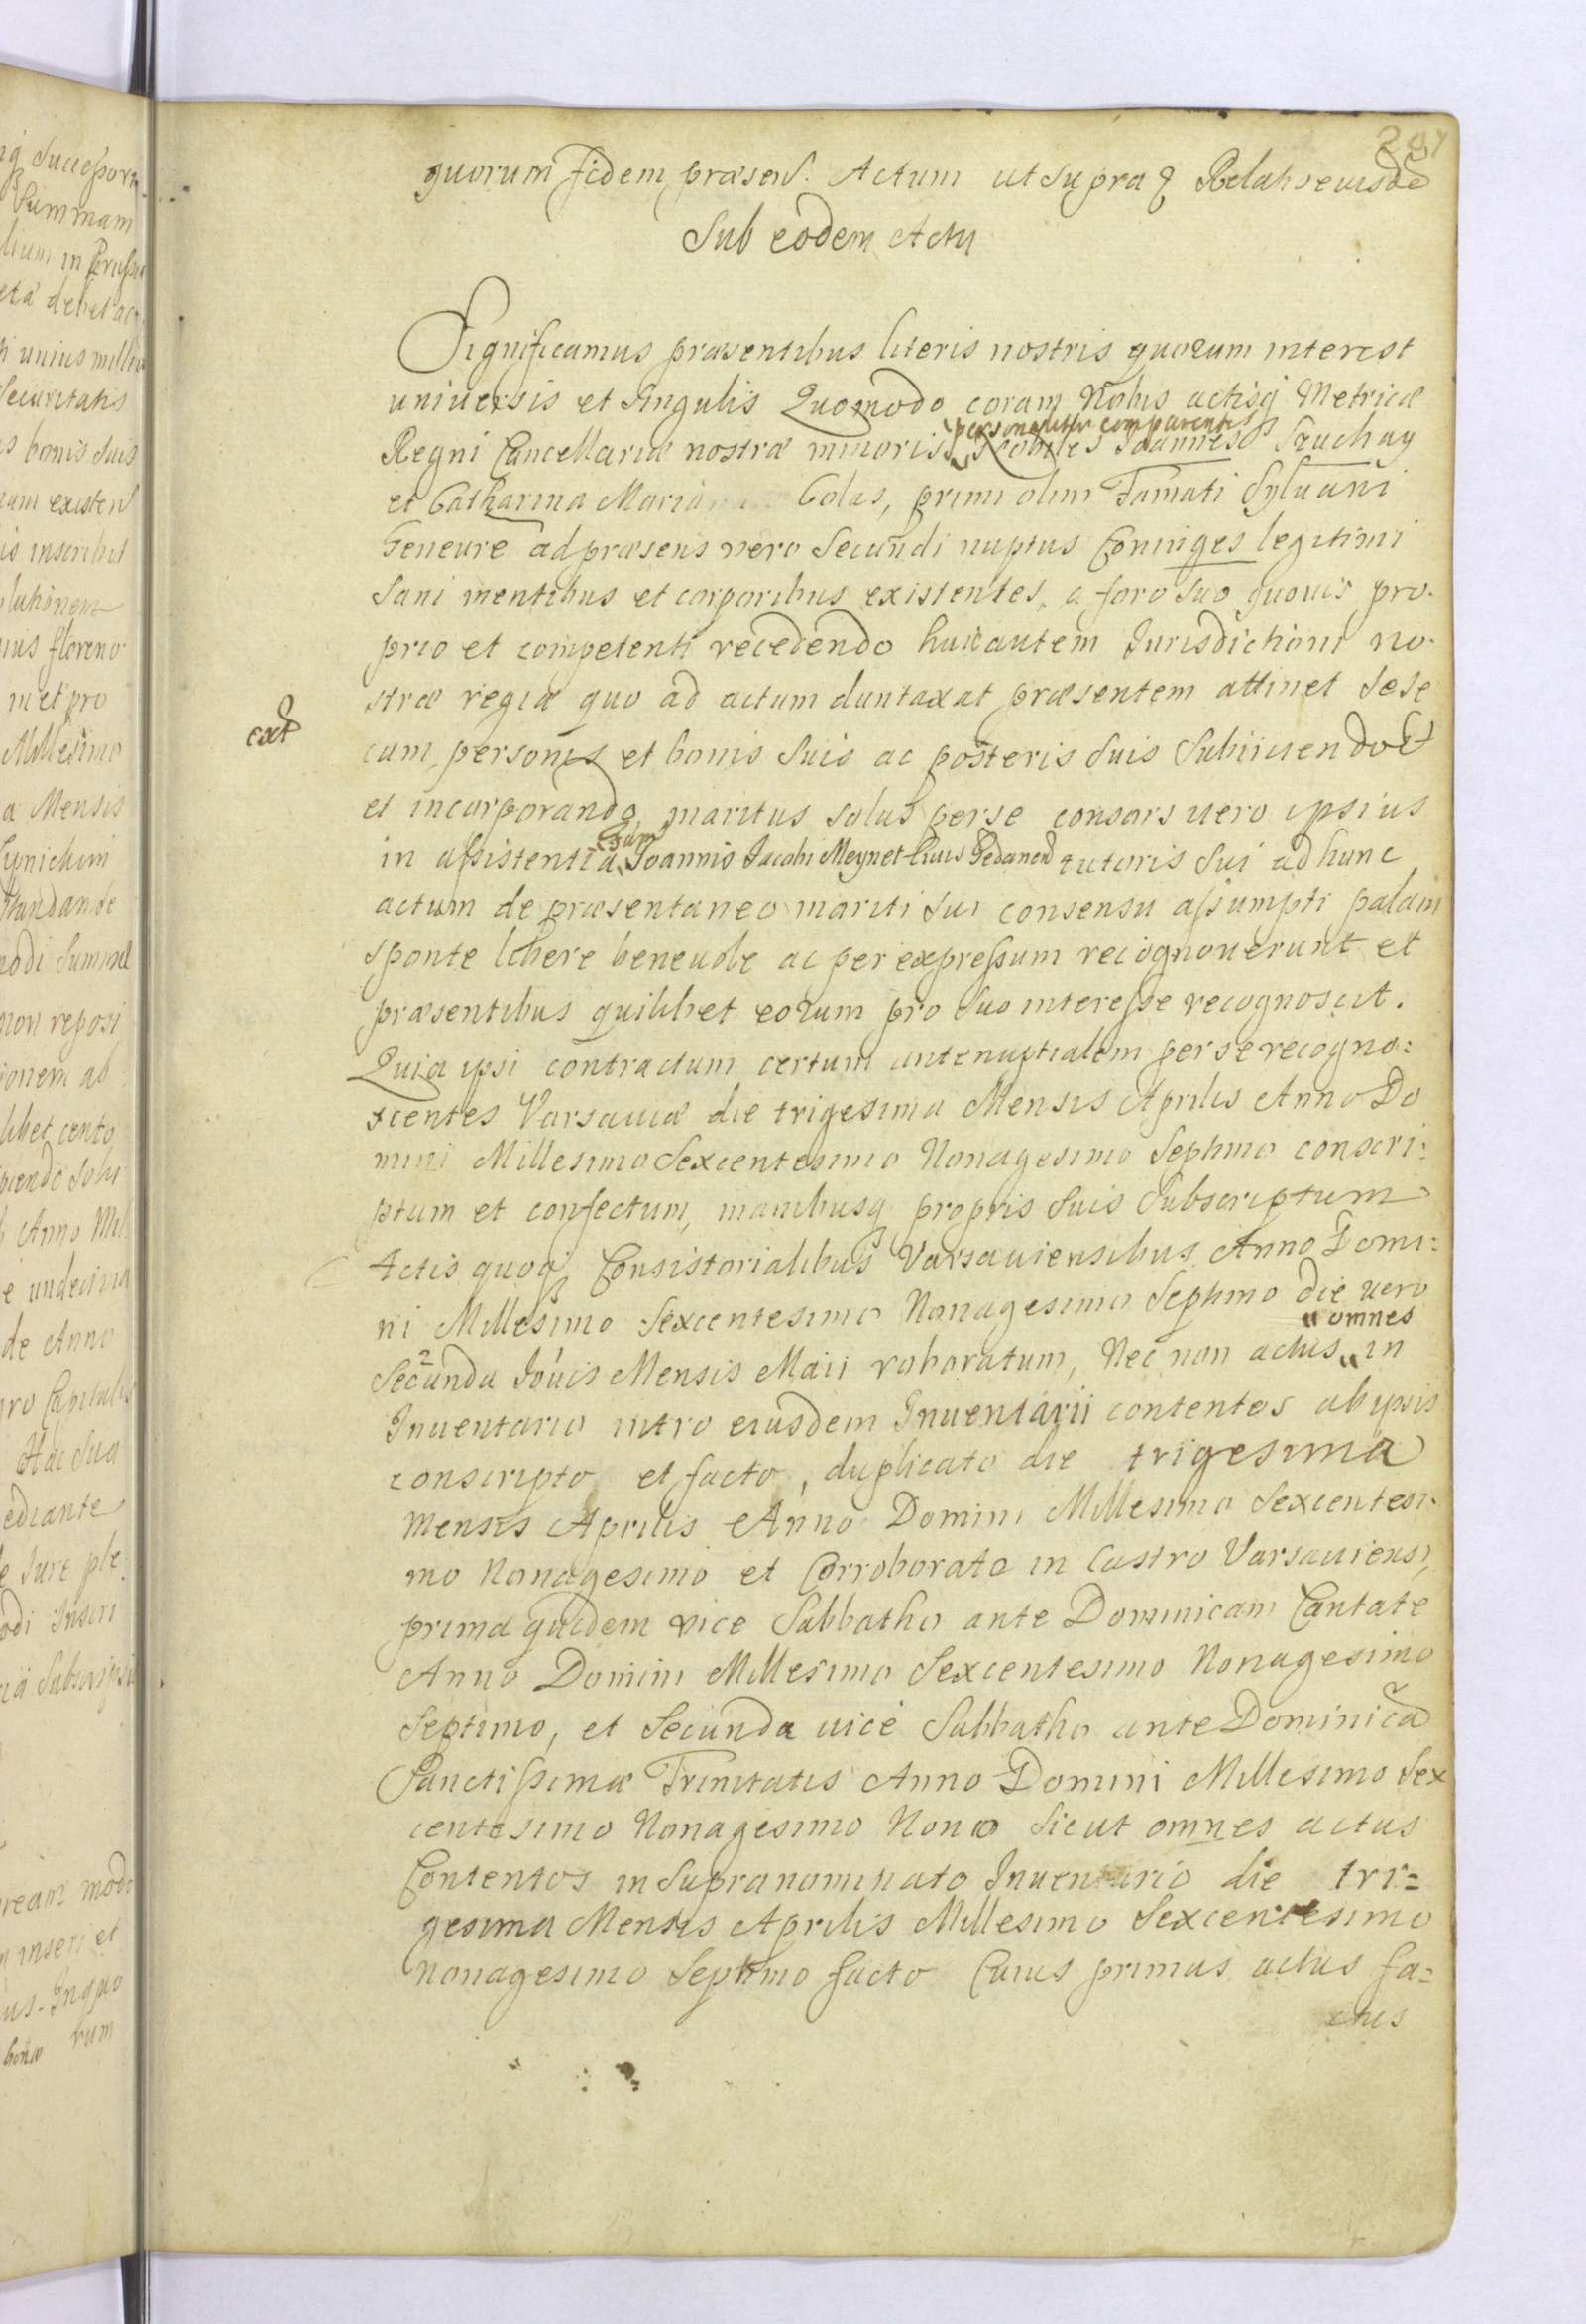 quorum fidem præsens. Actum ut supra Relatio eiusde
Sub eodem Actu
Significamus præsentibus literis nostris quorum interest
universis et singulis Quomodo coram Nobis actisq Metricæ
personaliter comparentes
Regni Cancellariæ nostræ minoris Nobiles Joannes Szuchay
et Catharina Maria Colas, primi olim Famati Sylvani
Geneure ad præsens vero Secundi nuptus Coniuges legitimi
Sani mentibus et corporibus existentes, a foro suo quovis pro-
prio et competenti recedendo huic autem Jurisdictioni no-
stræ regiæ quo ad actum duntaxat præsentem attinet sese
cum personis et bonis suis ac posteris suis Subiiciendo et
ext
et incorporando, maritus solus per se consors vero ipsius
Fam
in assistentia Joannis Jacobi Meynet Civis Gedanen tutoris sui ad hunc
actum de præsentaneo mariti sui consensu assumpti palam
sponte libere benevole ac per expressum recognoverunt et
præsentibus quilibet eorum pro suo interesse recognoscit.
Quia ipsi contractum certum antenuptialem per se recogno=
scentes Varsaviæ die trigesima Mensis Aprilis Anno Do
mini Millesimo Sexcentesimo Nonagesimo Septimo conscri=
ptum et confectum, manibusq propris suis Subscriptum
Actis quoq Consistorialibus Varsaviensibus Anno Domi=
ni Millesimo Sexcentesimo Nonagesimo Septimo die vero
omnes
Secunda Jovis Mensis Maii roboratum, Nec non actus in
Inventario intro eiusdem Inventarii contentos ab ipsis
conscripto et facto, duplicato die trigesima
mensis Aprilis Anno Domini Millesimo Sexcentesi-
mo Nonagesimo et Corroborato in Castro Varsaviensi,
prima quidem vice Sabbatho ante Dominicam Cantate
Anno Domini Millesimo Sexcentesimo Nonagesimo
Septimo, et Secunda vice Sabbatho ante Dominica
Sanctissimæ Trinitatis Anno Domini Millesimo Sex
centesimo Nonagesimo Nono Sicut omnes actus
Contentos in Supranominato Inventario die tri=
gesima Mensis Aprilis Millesimo Sexcentesimo
Nonagesimo Septimo facto Cuius primus actus fa=
ctus